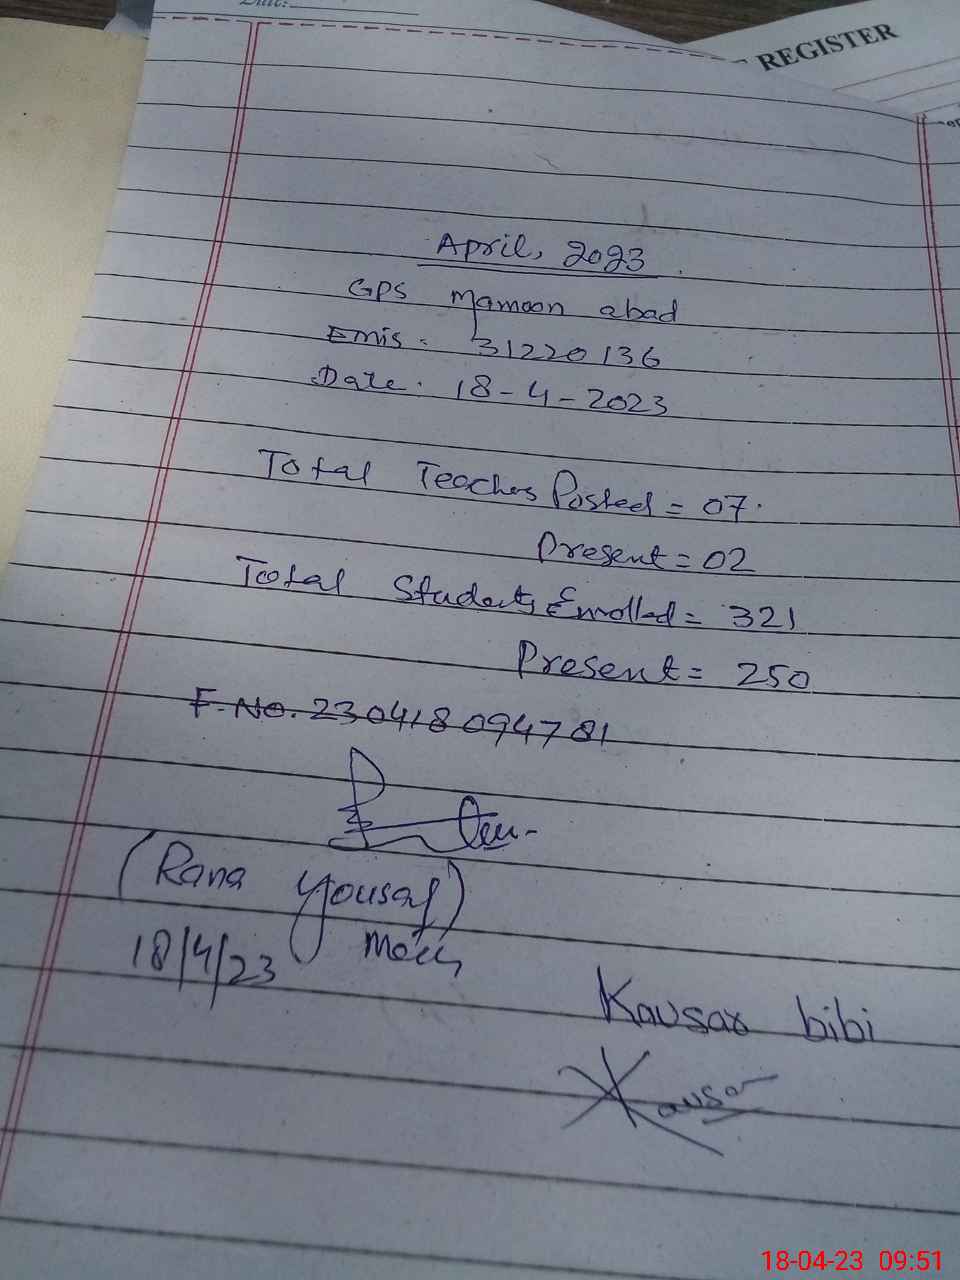 Date:
REGISTER
April, 2023
GPS Mamoon abad
Emis. 31220136
Date. 18-4-2023
Total Teachers Posted = 07.
Present = 02
Total Students Enrolled = 321
Present = 250
F.No. 230418094781
(Rana Yousaf)
18/4/23
Kausar bibi
Kausar
18-04-23 09:51